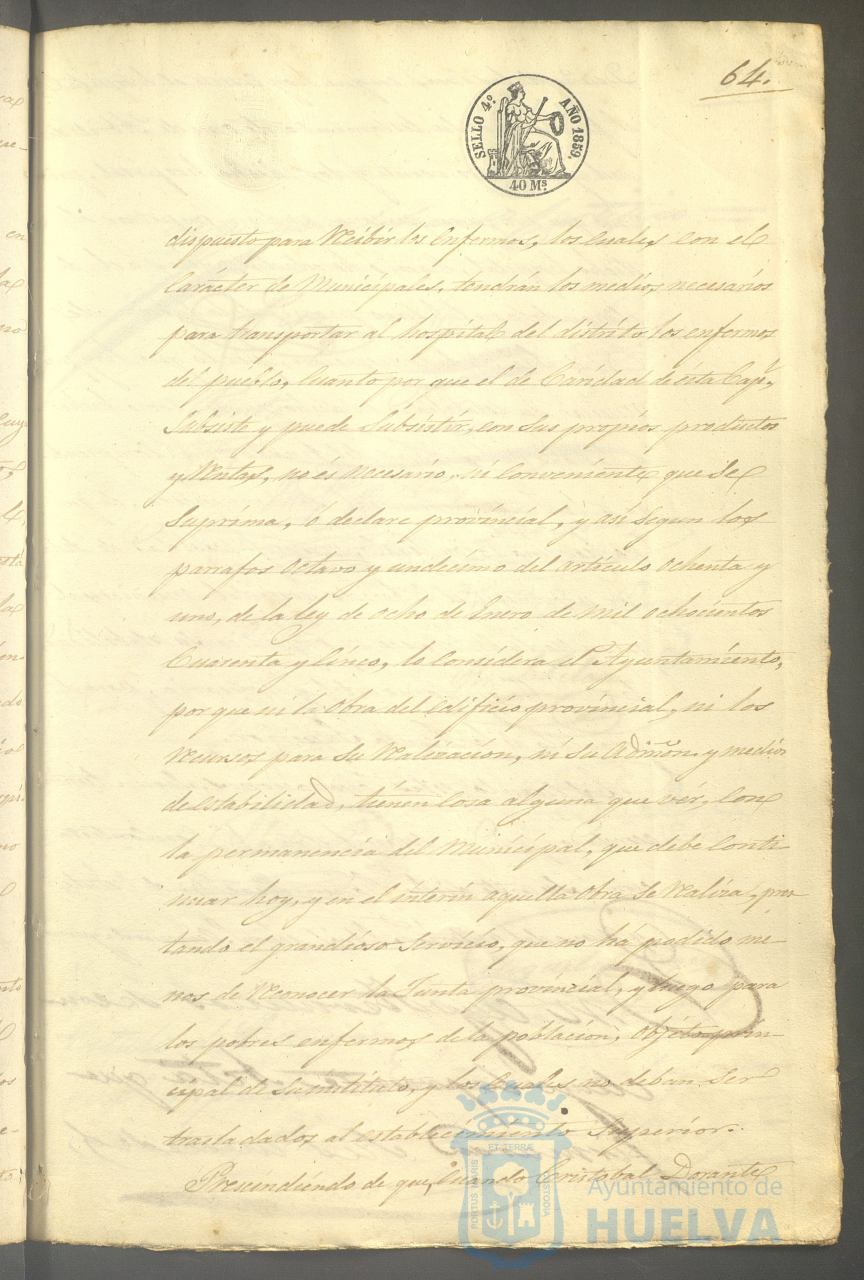 64.
SELLO 4.º AÑO 1859.
40 Ms.
dispuesto para recibir los enfermos, los cuales, con el
Carácter de Municipales, tendrán los medios necesarios
para transportar al hospital del distrito los enfermos
del pueblo, Cuanto por que el de Caridad de esta Capl,
Subsiste y puede Subsistir, con sus propios productos
y Rentas, no és necesario, ni Conveniente que se
Suprima, ó declare provincial, y asi segun los
parrafos Octavo y undecimo del articulo Ochenta y
uno, de la Ley de Ocho de Enero de Mil Ochocientos
Cuarenta y Cinco, lo Considera el Ayuntamiento,
por que ni la Obra del edificio provincial, ni los
recursos para su realizacion, ni su Admon. y medios
de estabilidad, tienen Cosa alguna que vér, con
la permanencia del Municipal, que debe Conti-
nuar hoy, y en el interin aquella Obra se realiza, pres-
tando el grandioso Servicio, que no há podido me-
nos de reconocer la Junta provincial, y luego para
los pobres enfermos de la poblacion, Objeto prin-
cipal de su instituto, y los Cuales no deban ser
trasladados al establecimiento Superior.
Prescindiendo de que, Cuando Cristobal Dorante
PORTUS MARIS ET TERRAE CUSTODIA
Ayuntamiento de
HUELVA